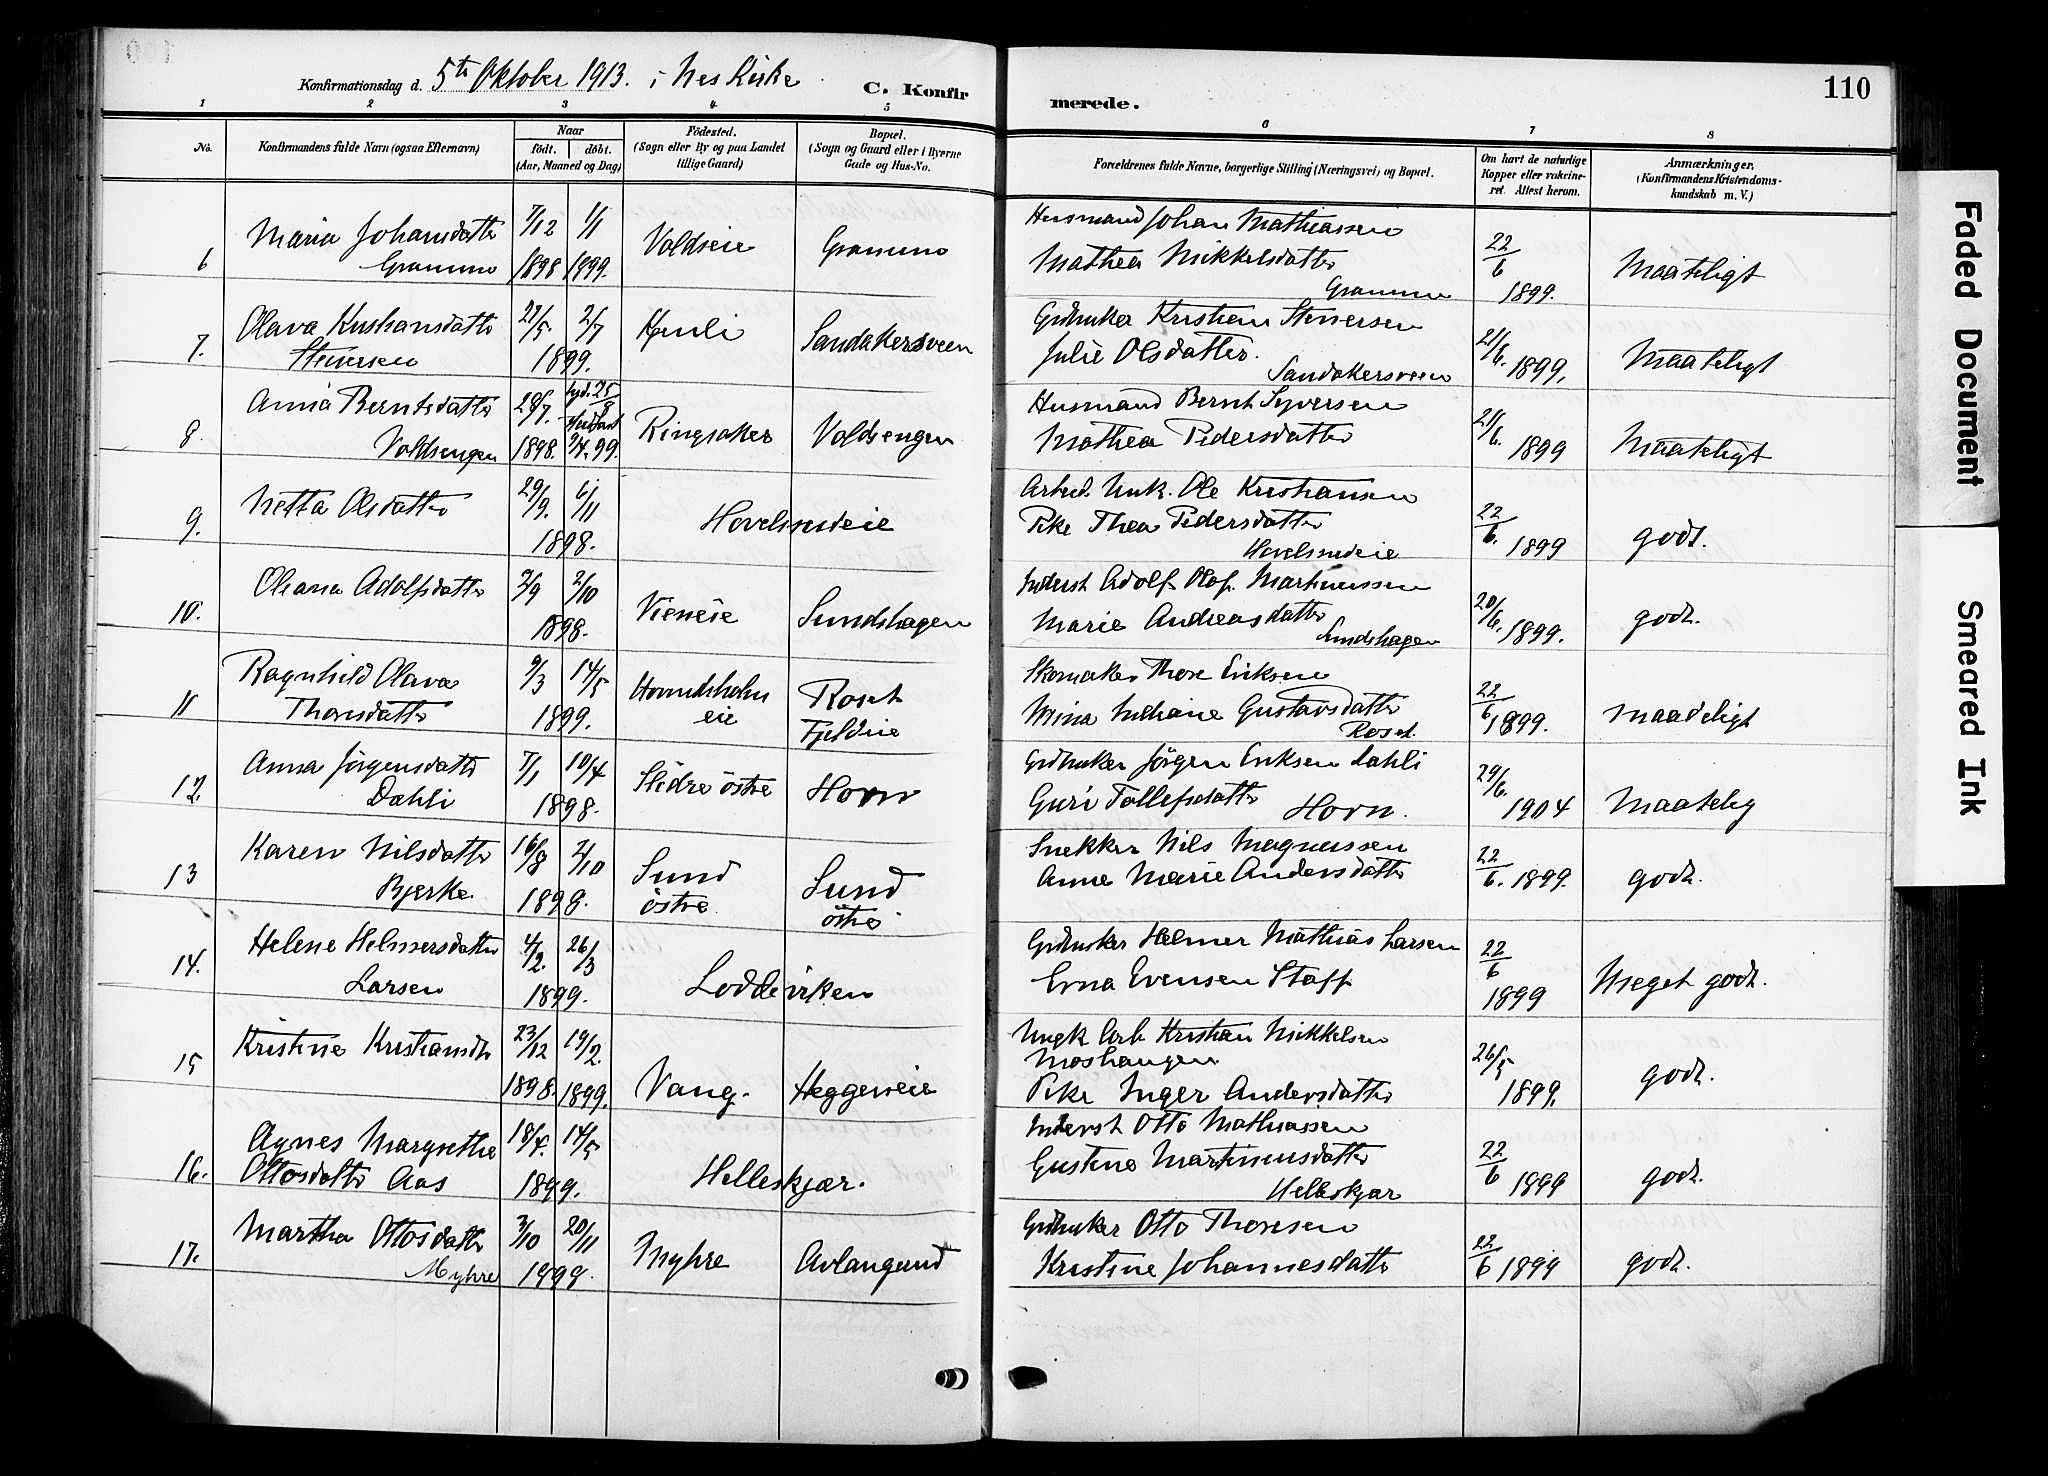 110
Konfirmationsdag d. 5te Oktober 1913. i Nes Kirke
C. Konfirmerede.
1 2 3 4 5 6 7 8
No.
Konfirmandens fulde Navn (ogsaa Efternavn)
Naar
födt. döbt.
(Aar, Maaned og Dag)
Födested.
(Sogn eller By og paa Landet
tillige Gaard)
Bopæl.
(Sogn og Gaard eller i Byerne
Gade og Hus-No.
Forældrenes fulde Navne, borgerlige Stilling (Næringsvei) og Bopæl.
Om havt de naturlige
Kopper eller vakcine-
ret. Attest herom.
Anmærkninger.
(Konfirmandens Kristendoms-
kundskab m. V.)
6 Maria Johansdatter
Grammo
7/12 1898 1/1 1899.
Voldseie
Grammo
Husmand Johan Mathiassen
Mathea Mikkelsdatter
Grammo
22/6 1899.
Maateligt
7. Olava Kristiansdatter
Stenersen
2/7
1899.
Sandakersveen
Grdbruker Kristian Stenersen
Julie Olsdatter.
Sandakersveen
21/6. 1899.
Maateligt
8. Anna Berntsdatter
Voldsengen
1898. 99.
Ringsaker
Voldsengen
Husmand Bernt Syversen
Mathea Pedersdatter
21/6. 1899
Maateligt
9. Netta Olsdatter
29/9. 6/11
1898.
Hovelsrudeie
Arbeid. Unk. Ole Kristiansen
Pike Thea Pedersdatter
Hovelsrudeie
22/6. 1899
godt.
10. Oleana Adolfsdatter
2/9 2/10
1898.
Vieneie
Sundshagen
Inderst Adolf Olof Martinussen
Marie Andreasdatter
Sundshagen
20/6. 1899.
godt.
11 Ragnhild Olava
Thoresdatter
9/3 14/5
1899.
eie
Roset
Fjeldeie
Skomaker Thore Eriksen
Gustavsdatter
Roset.
22/6 1899.
maadeligt
12. Anna Jörgensdatter
Dahli
7/1 10/4
1898.
Slidre östre
Horn
Grdbruker Jörgen Eriksen Dahli
Guri Tollefsdatter
Horn.
29/6. 1904
Maatelig
13 Karen Nilsdatter
Bjerke.
16/8 2/10
1898.
Sund
östre.
Sund
östre.
Snekker Nils Magnussen
Anne Marie Andersdatter
22/6. 1899.
godt.
14. Helene Helmersdatter
Larsen
4/2. 26/3
1899.
Loddviken
Grdbruker Helmer Mathias Larsen
Erna Evensen Staff
22/6 1899
Meget godt.
15 Kristine Kristiansdt
23/12 1898. 19/2. 1899.
Vang.
Heggeneie
Ungk Arb Kristian Mikkelsen
Moshaugen
Pike Inger Andersdatter
26/5 1899.
godt.
16. Agnes Margrethe
Ottosdatter Aas
18/4. 14/5
1899.
Helleskjær.
Inderst Otto Mathiassen
Gustine Martinusdatter
Helleskjær
22/6 1899
godt.
17. Martha Ottosdatter
Myhre
3/10 20/11
Myhre
Avlangrud
Grdbruker Otto Thoresen
Kristine Johannesdatter
22/6 1899
godt.
Faded Document
Smeared Ink